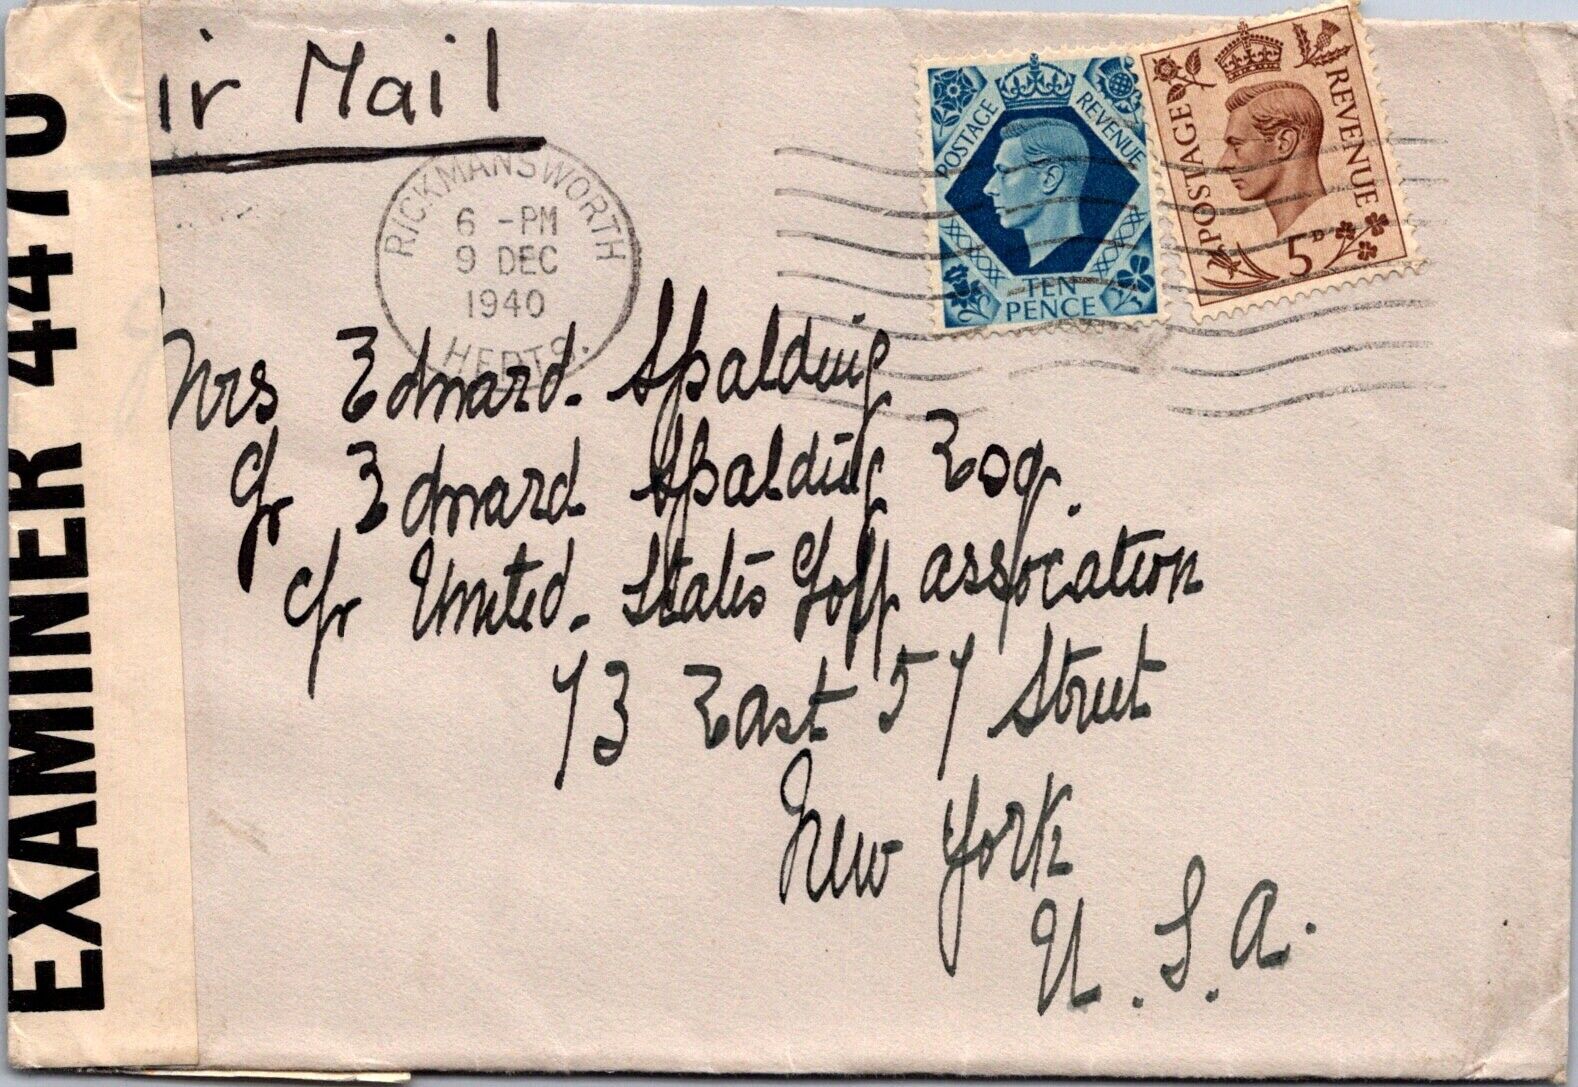 ir Mail
EXAMINER 4470
RICKMANSWORTH
6 - PM
9 DEC
1940
HERTS.
POSTAGE REVENUE
TEN
PENCE
POSTAGE REVENUE
5D
Mrs Edward Spalding
c/o Edward Spalding Esq.
c/o United States Golf association
73 East 57 Street
New York
U.S.A.